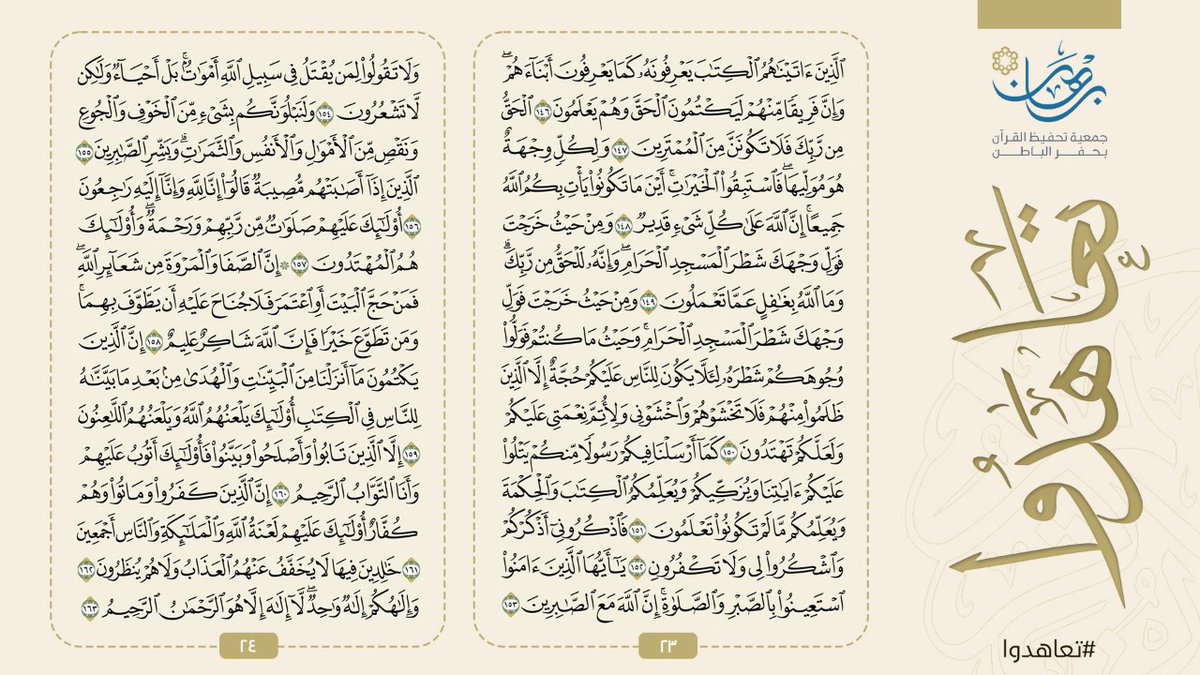 برهان
جمعية تحفيظ القرآن
بحفر الباطن
تعاهدوا
#تعاهدوا
الَّذِينَ ءَاتَيْنَٰهُمُ الْكِتَٰبَ يَعْرِفُونَهُۥ كَمَا يَعْرِفُونَ أَبْنَآءَهُمْ ۖ
وَإِنَّ فَرِيقًا مِّنْهُمْ لَيَكْتُمُونَ الْحَقَّ وَهُمْ يَعْلَمُونَ ١٤٦ الْحَقُّ
مِن رَّبِّكَ فَلَا تَكُونَنَّ مِنَ الْمُمْتَرِينَ ١٤٧ وَلِكُلٍّ وِجْهَةٌ
هُوَ مُوَلِّيهَا ۖ فَاسْتَبِقُوا۟ الْخَيْرَٰتِ ۚ أَيْنَ مَا تَكُونُوا۟ يَأْتِ بِكُمُ اللَّهُ
جَمِيعًا ۚ إِنَّ اللَّهَ عَلَىٰ كُلِّ شَىْءٍ قَدِيرٌ ١٤٨ وَمِنْ حَيْثُ خَرَجْتَ
فَوَلِّ وَجْهَكَ شَطْرَ الْمَسْجِدِ الْحَرَامِ ۖ وَإِنَّهُۥ لَلْحَقُّ مِن رَّبِّكَ ۗ
وَمَا اللَّهُ بِغَٰفِلٍ عَمَّا تَعْمَلُونَ ١٤٩ وَمِنْ حَيْثُ خَرَجْتَ فَوَلِّ
وَجْهَكَ شَطْرَ الْمَسْجِدِ الْحَرَامِ ۚ وَحَيْثُ مَا كُنتُمْ فَوَلُّوا۟
وُجُوهَكُمْ شَطْرَهُۥ لِئَلَّا يَكُونَ لِلنَّاسِ عَلَيْكُمْ حُجَّةٌ إِلَّا الَّذِينَ
ظَلَمُوا۟ مِنْهُمْ فَلَا تَخْشَوْهُمْ وَاخْشَوْنِى وَلِأُتِمَّ نِعْمَتِى عَلَيْكُمْ
وَلَعَلَّكُمْ تَهْتَدُونَ ١٥٠ كَمَآ أَرْسَلْنَا فِيكُمْ رَسُولًا مِّنكُمْ يَتْلُوا۟
عَلَيْكُمْ ءَايَٰتِنَا وَيُزَكِّيكُمْ وَيُعَلِّمُكُمُ الْكِتَٰبَ وَالْحِكْمَةَ
وَيُعَلِّمُكُم مَّا لَمْ تَكُونُوا۟ تَعْلَمُونَ ١٥١ فَاذْكُرُونِىٓ أَذْكُرْكُمْ
وَاشْكُرُوا۟ لِى وَلَا تَكْفُرُونِ ١٥٢ يَٰٓأَيُّهَا الَّذِينَ ءَامَنُوا۟
اسْتَعِينُوا۟ بِالصَّبْرِ وَالصَّلَوٰةِ ۚ إِنَّ اللَّهَ مَعَ الصَّٰبِرِينَ ١٥٣
٢٣
وَلَا تَقُولُوا۟ لِمَن يُقْتَلُ فِى سَبِيلِ اللَّهِ أَمْوَٰتٌۢ ۚ بَلْ أَحْيَآءٌ وَلَٰكِن
لَّا تَشْعُرُونَ ١٥٤ وَلَنَبْلُوَنَّكُم بِشَىْءٍ مِّنَ الْخَوْفِ وَالْجُوعِ
وَنَقْصٍ مِّنَ الْأَمْوَٰلِ وَالْأَنفُسِ وَالثَّمَرَٰتِ ۗ وَبَشِّرِ الصَّٰبِرِينَ ١٥٥
الَّذِينَ إِذَآ أَصَٰبَتْهُم مُّصِيبَةٌ قَالُوٓا۟ إِنَّا لِلَّهِ وَإِنَّآ إِلَيْهِ رَٰجِعُونَ
١٥٦ أُو۟لَٰٓئِكَ عَلَيْهِمْ صَلَوَٰتٌ مِّن رَّبِّهِمْ وَرَحْمَةٌ ۖ وَأُو۟لَٰٓئِكَ
هُمُ الْمُهْتَدُونَ ١٥٧ ۞ إِنَّ الصَّفَا وَالْمَرْوَةَ مِن شَعَآئِرِ اللَّهِ ۖ
فَمَنْ حَجَّ الْبَيْتَ أَوِ اعْتَمَرَ فَلَا جُنَاحَ عَلَيْهِ أَن يَطَّوَّفَ بِهِمَا ۚ
وَمَن تَطَوَّعَ خَيْرًا فَإِنَّ اللَّهَ شَاكِرٌ عَلِيمٌ ١٥٨ إِنَّ الَّذِينَ
يَكْتُمُونَ مَآ أَنزَلْنَا مِنَ الْبَيِّنَٰتِ وَالْهُدَىٰ مِنۢ بَعْدِ مَا بَيَّنَّٰهُ
لِلنَّاسِ فِى الْكِتَٰبِ أُو۟لَٰٓئِكَ يَلْعَنُهُمُ اللَّهُ وَيَلْعَنُهُمُ اللَّٰعِنُونَ
١٥٩ إِلَّا الَّذِينَ تَابُوا۟ وَأَصْلَحُوا۟ وَبَيَّنُوا۟ فَأُو۟لَٰٓئِكَ أَتُوبُ عَلَيْهِمْ
وَأَنَا التَّوَّابُ الرَّحِيمُ ١٦٠ إِنَّ الَّذِينَ كَفَرُوا۟ وَمَاتُوا۟ وَهُمْ
كُفَّارٌ أُو۟لَٰٓئِكَ عَلَيْهِمْ لَعْنَةُ اللَّهِ وَالْمَلَٰٓئِكَةِ وَالنَّاسِ أَجْمَعِينَ
١٦١ خَٰلِدِينَ فِيهَا لَا يُخَفَّفُ عَنْهُمُ الْعَذَابُ وَلَا هُمْ يُنظَرُونَ ١٦٢
وَإِلَٰهُكُمْ إِلَٰهٌ وَٰحِدٌ ۖ لَّآ إِلَٰهَ إِلَّا هُوَ الرَّحْمَٰنُ الرَّحِيمُ ١٦٣
٢٤